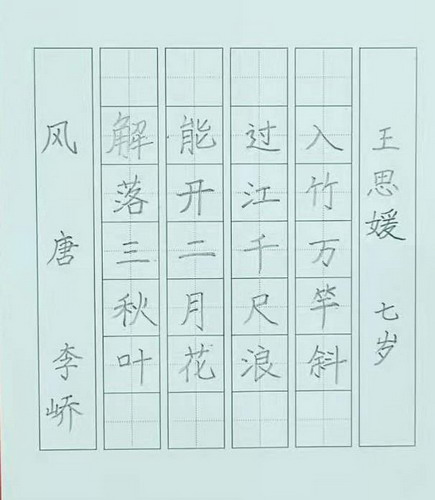 风 唐 李峤
解落三秋叶
能开二月花
过江千尺浪
入竹万竿斜
王思媛 七岁